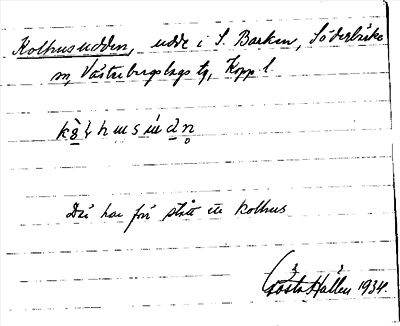 Kolhusudden, udde i S. Barken, Söderbärke
sn, Västerbergslags tg, Kopp. l.
Där har förr stått ett kolhus
Gösta Hallén 1934.